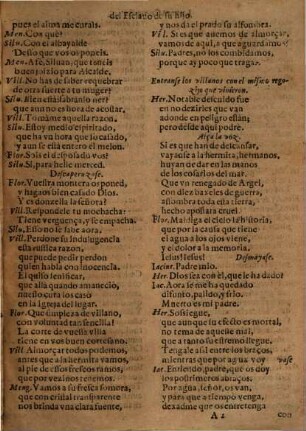 del Esclavo de su hijo.
pues el alma me curais.
Men. Con què?
Silu. Con el alvayalde.
Desso que vos os poneis.
Men. A fe, Siluan, que teneis
buena
para Alcalde.
Vill. No has de saber requebrar
de otra suerte a tu muger?
Silu. Bien està
que aun no es hora de acostar.
Vill. Tomàme aquella razon.
Silu. Estoy medio
que ha vn hora que soy casado,
y aun se està entero el melon.
Flor. Sois el desposado vos?
Silu. Si, para beile merced.
Flor. Vuestra montera os poned,
y hagaos bien casado Dios.
Y es donzella la señora?
Vill. Respondedle tu mochacha?
Tiene verguença, y se empacha.
Silu. Esso no se sabe aora.
Vill. Perdone su Indulugencia
esta rustica razon,
que puede pedir perdon
quien habla con inocencia.
El quiso sentificar,
que allà quando amanecio,
nuestro cura los casò
en la Igreja del lugar.
Flor. Que simpleza de villano,
con voluntad tan senzilla!
La corte de vuestra villa
tiene en vos buen cortesano.
Vill. Almorçar todos podemos,
antes que a la hermita vamos,
al pie de essos frescos ramos,
que por vezinos tenemos.
Meng. Vamos a su fresca sombra,
que con cristal transparente
nos brinda vna clara fuente,
y nos dà el prado su alfombra.
Vil. Si es que auemos de almorçar,
vamos de aqui, a que aguardamos?
Silu. Padres, no los combidamos,
porque es aquesto traga.
Entranse los villanos con el mismo regozijo que vinieron.
Her. Notable descuido fue
en no dezirles que van
adonde en peligro estàn;
pero desde aqui podrè.
Alça la voz.
Si es que han de descansar,
vayanse a la hermita, hermanos,
huyan de dar en las manos
de los cosarios del mar.
Que vn renegado de Argel,
con diez baxeles de guerra,
assombra toda esta tierra,
hecho açote a la cruel.
Flor. Maldiga el cielo la historia,
que por la causa que tiene
el agua a los ojos viene,
y el dolor a la memoria.
Iesus! Iesus! Desmayase.
Iacin. Padre mio.
Her. Dios sea con èl, que le ha dado?
Iac. Aora se me ha quedado
difunto, palido, y frio.
Muerto es mi padre.
Her. Sossiegue,
que aunque su efecto es mortal,
no tema de aquesse mal,
que a tanto su estremo llegue.
Tengale assi entre los braços,
mientras que por agua voy vase
Iac. Entiendo, padre, que os doy
los postrimeros abraços.
Por agua, señor, os van,
y pues que a tiempo venga,
dexadme que os entretenga
A 2 con